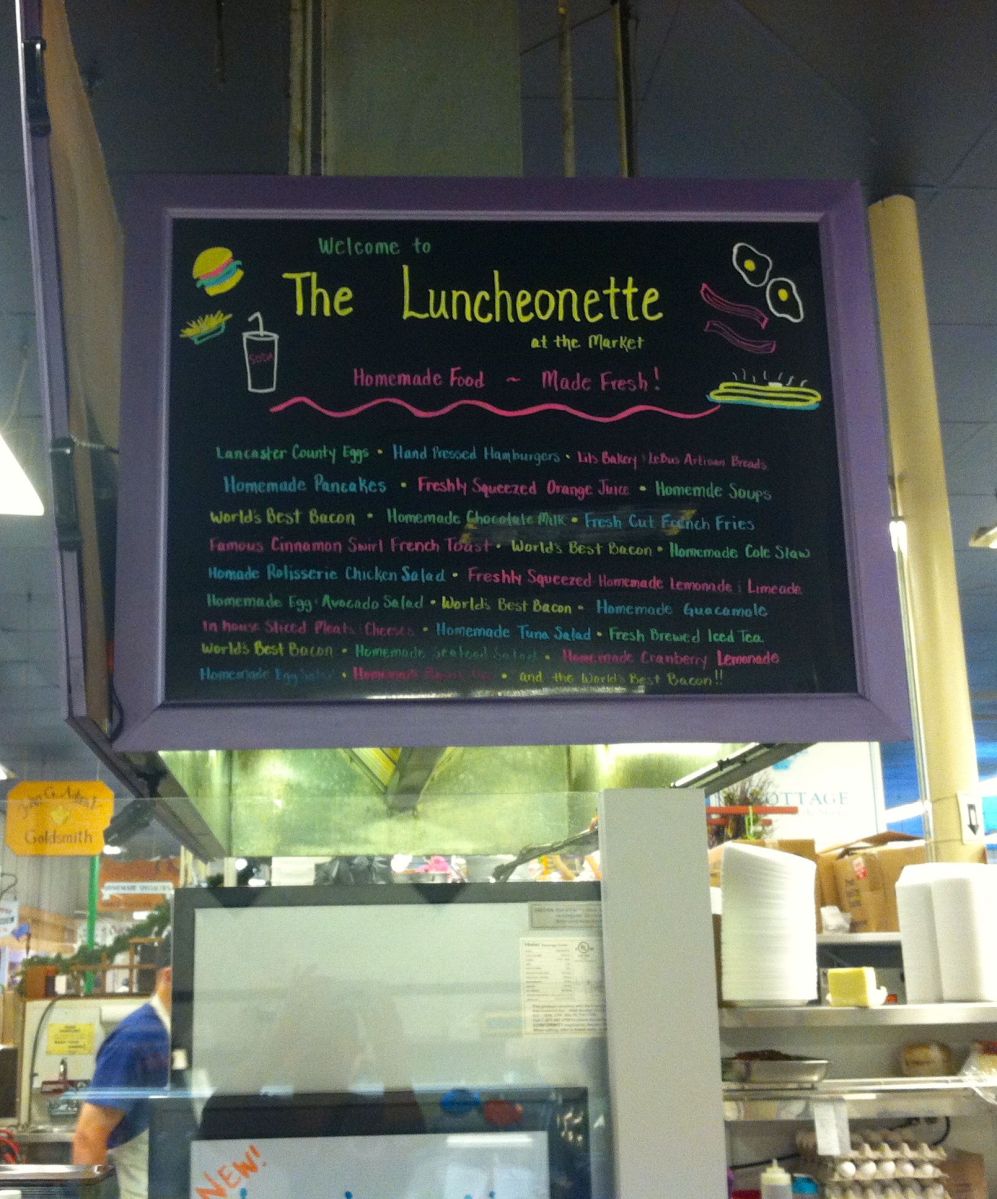 Welcome to
The Luncheonette
at the Market
SODA
Homemade Food ~ Made Fresh!
Lancaster County Eggs • Hand Pressed Hamburgers • Lil's Bakery & LeBus Artisan Breads
Homemade Pancakes • Freshly Squeezed Orange Juice • Homemde Soups
World's Best Bacon • Homemade Chocolate Milk • Fresh Cut French Fries
Famous Cinnamon Swirl French Toast • World's Best Bacon • Homemade Cole Slaw
Homade Rotisserie Chicken Salad • Freshly Squeezed Homemade Lemonade & Limeade
Homemade Egg & Avocado Salad • World's Best Bacon • Homemade Guacamole
In house Sliced Meats & Cheeses • Homemade Tuna Salad • Fresh Brewed Iced Tea
World's Best Bacon • Homemade Seafood Salad • Homemade Cranberry Lemonade
Homemade Egg Salad • Homemade • and the World's Best Bacon!!
OTTAGE
Goldsmith
HOMEMADE SPECIALTIES
NEW!